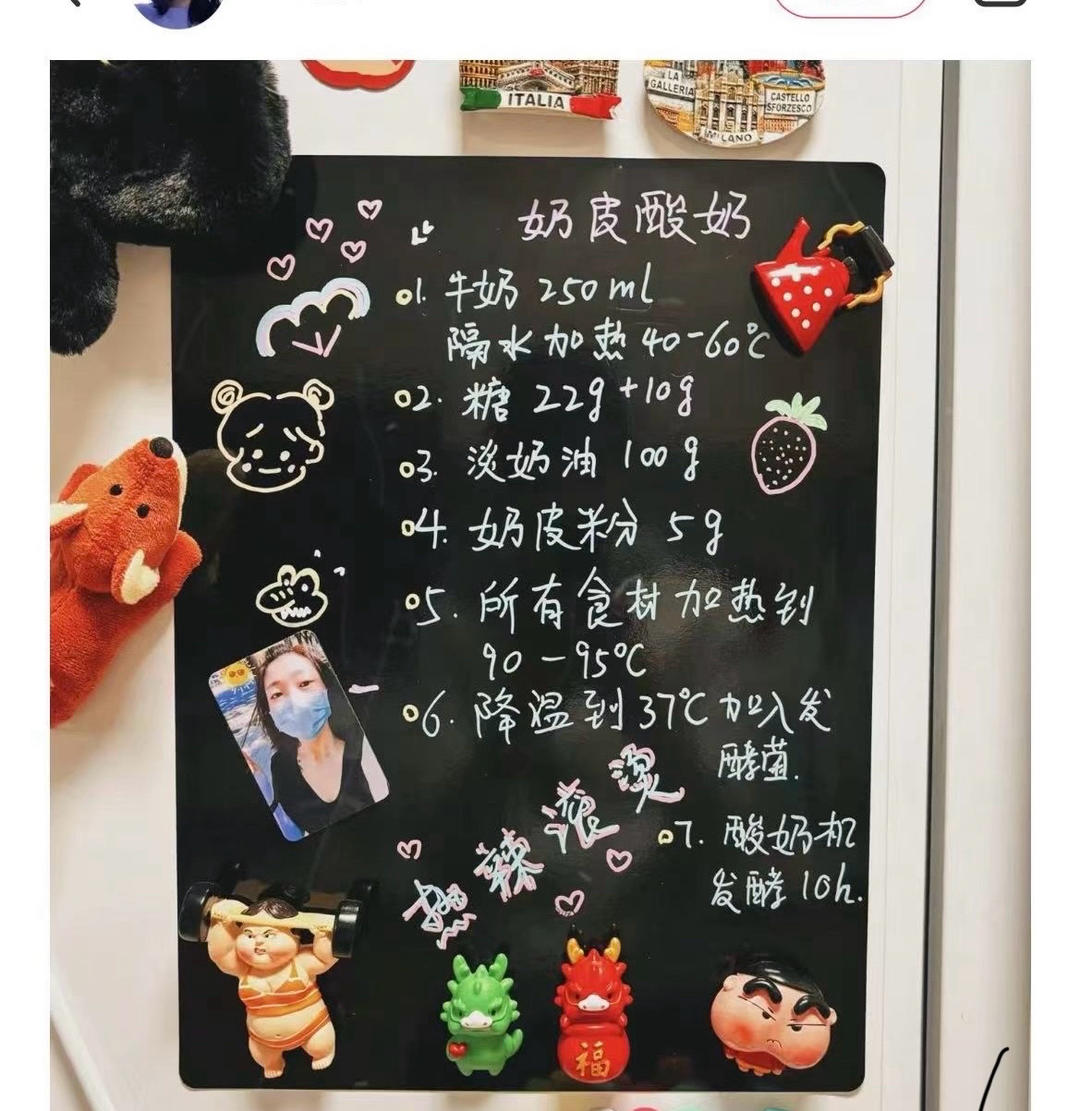 ITALIA
LA
GALLERIA
CASTELLO
SFORZESCO
MILANO
奶皮酸奶
1. 牛奶 250ml
隔水加热 40-60℃
2. 糖 22g+10g
3. 淡奶油 100g
4. 奶皮粉 5g
5. 所有食材加热到
90-95℃
6. 降温到37℃加入发
酵菌.
7. 酸奶机
发酵10h.
热辣滚烫
福